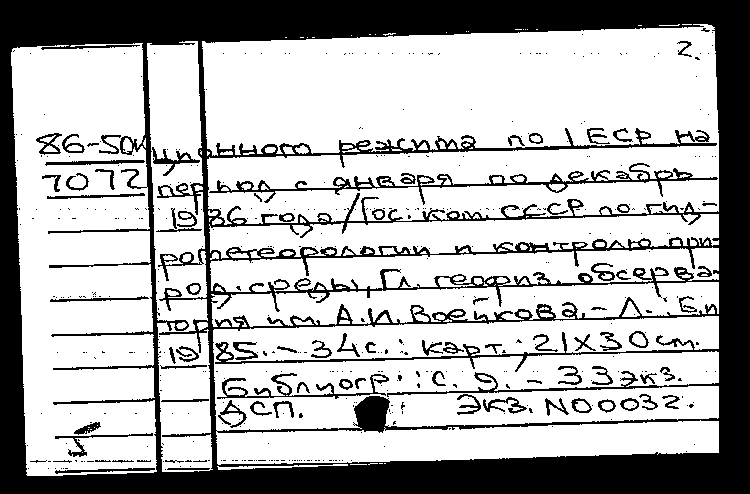 2.
86-5ДК ционного режима по I ЕСР на
7072 период с января по декабрь
1986 года/Гос. ком. СССР по гид-
рометеорологии и контролю при-
род. среды, Гл. геофиз. обсерва-
тория им. А.И. Воейкова. - Л. : Б.и
1985. - 34с. : карт.; 21X30см.
Библиогр.: с. 9. - 33экз.
ДСП. Экз. N00032.